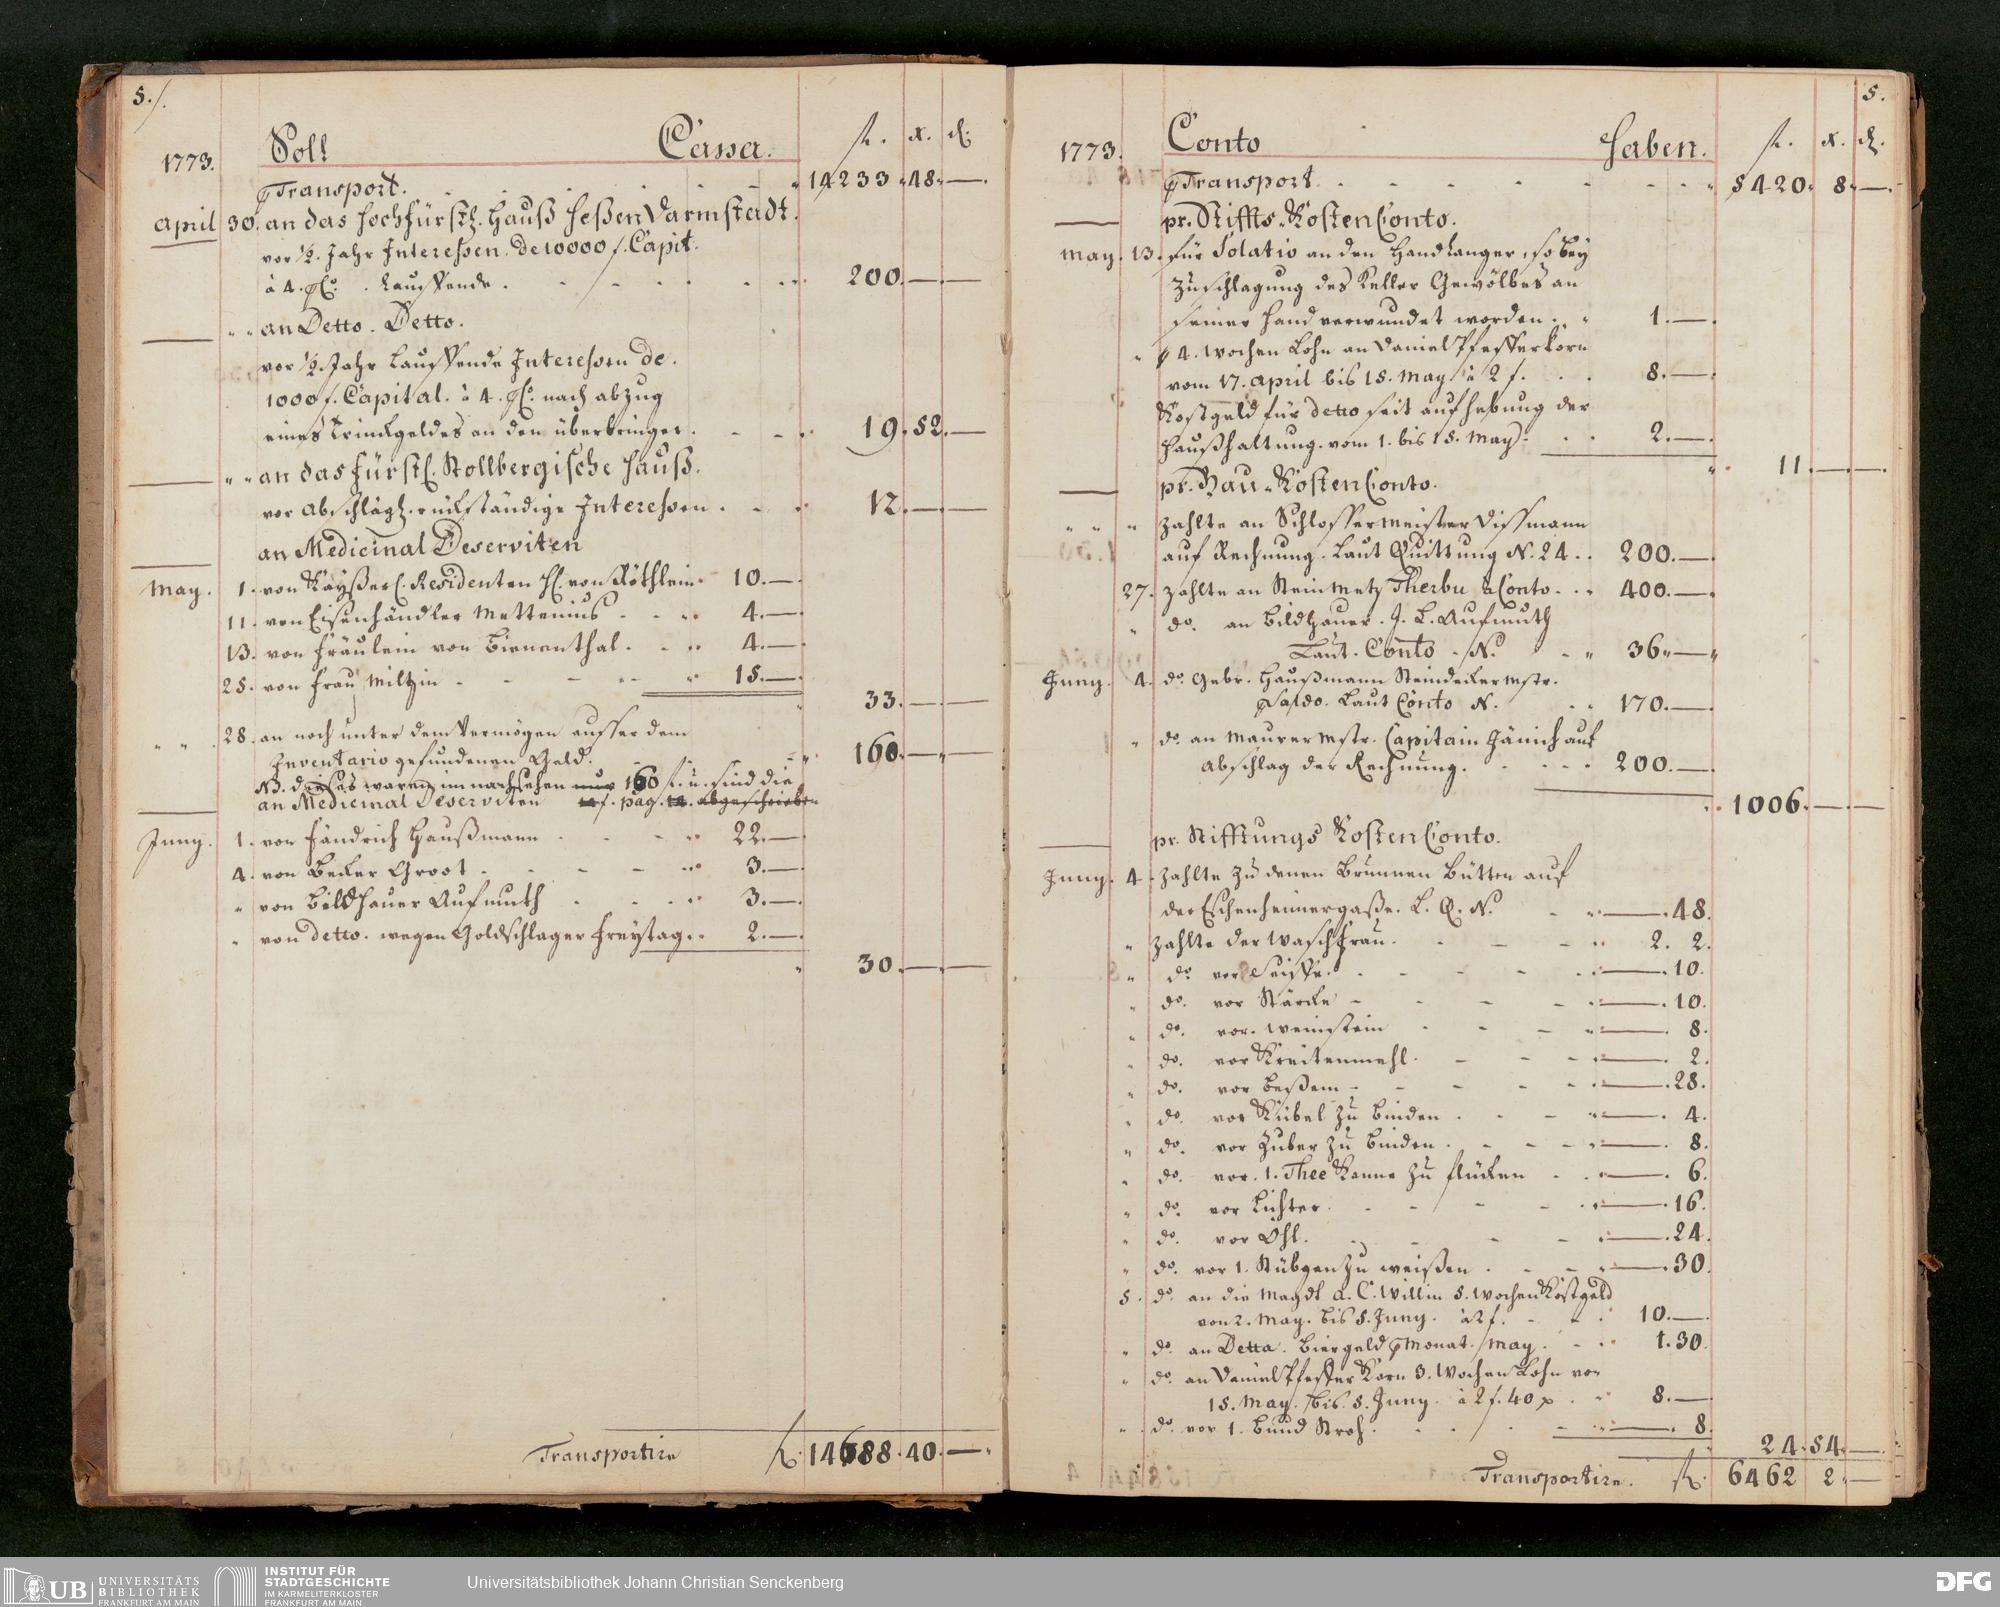 5.
1773. Soll Cassa. fl. x. d.
pTransport. 14233. 48. —
april 30. an das Hochfürstl. Hauß Heßen Darmstadt.
vor ½. Jahr Interessen. de 10000 f. Capit.
à 4. pCo. Lauffende. 200. — —
" " an Detto. Detto.
vor ½. Jahr Lauffende Interessen de.
1000 f. Capital. à 4. pCo. nach abzug
eines Trinkgeldes an den überbringer. 19. 52. —
" " an das fürstl. Stollbergische Hauß.
vor abschlägl. rückständige Interessen. 12. — —
an Medicinal Deserviten
May. 1. von Kayßerl. Residenten H. von Röthlein 10. —
11. von Eisenhändler Mettenius 4. —
13. von Fräulein von Bienenthal. 4. —
25. von Frau Miltzin 15. —
33. — —
" " 28. an noch unter dem Vermögen ausser dem
Inventario gefundenen Geld. 160. — —
NB. dieses waren im nachsehen nur 160 f. u. sind die
an Medicinal Deserviten f. pag. 14. abgeschrieben
Juny. 1. von Fändrich Haußmann 22. —
4. von Becker Groot 3. —
" von Bildhauer Aufmuth 3. —
" von detto. wegen Goldschlager Freytag. 2. —
30. — —
Transportire fl. 14688. 40. —
5.
1773. Conto Haben. fl. x. d.
pTransport 5420. 8. —
pr. Stiffts-Kosten Conto.
May. 13. für Solatio an den Handlanger, so bey
Zuschlagung des Keller Gewölbes an
seiner Hand verwundet worden. 1. —
" p 4. Wochen Lohn an Daniel Pfefferkorn
vom 17. april bis 15. May. à 2 f. 8. —
Kostgeld für detto seit aufhebung der
Haußhaltung. vom 1. bis 15. May. 2. —
11. — —
pr. Bau-Kosten Conto.
" " " Zahlte an Schlossermeister Dissmann
auf Rechnung. Laut Quittung N. 24. 200. —
27. Zahlte an Steinmetz Therbu à Conto. 400. —
" do. an Bildhauer. J. L. Aufmuth
Laut. Conto N. 36. —
Juny. 4. do. Gebr. Haußmann Steindeckermstr.
pSaldo. Laut Conto N. 170. —
" do. an Maurermstr. Capitain Jänich auf
Abschlag der Rechnung. 200. —
1006. — —
pr. Stifftungs Kosten Conto.
Juny. 4. Zahlte zu denen Brunnen Bütten auf
der Eschenheimergaße. L. Q. N. — 48.
" Zahlte der Waschfrau. 2. 2.
" do. vor Seiffe. — 10.
" do. vor Stärcke — 10.
" do. vor. Weinstein — 8.
" do. vor Kreitenmehl. — 2.
" do. vor Beßem — 28.
" do. vor Kübel zu binden. — 4.
" do. vor Zuber zu binden. — 8.
" do. vor. 1. Thee Kanne zu flücken — 6.
" do. vor Lichter. — 16.
" do. vor Öhl. — 24.
" do. vor 1. Stübgen zu weißen. — 30.
5. do. an die Magdt A. C. Willin 5. Wochen Kostgeld
von 2. May. bis 5. Juny. à 2 f. 10. —
" do. an Detta. Biergeld p Monat. May. 1. 30.
" do. an Daniel Pfeffer Korn 3. Wochen Lohn von
15. May. bis. 5. Juny. à 2 f. 40 x. 8. —
" do. vor 1. Bund Stroh. — 8.
24. 54. —
Transportire. fl. 6462 2. —
UB UNIVERSITÄTS
BIBLIOTHEK
FRANKFURT AM MAIN
INSTITUT FÜR
STADTGESCHICHTE
IM KARMELITERKLOSTER
FRANKFURT AM MAIN
Universitätsbibliothek Johann Christian Senckenberg
DFG